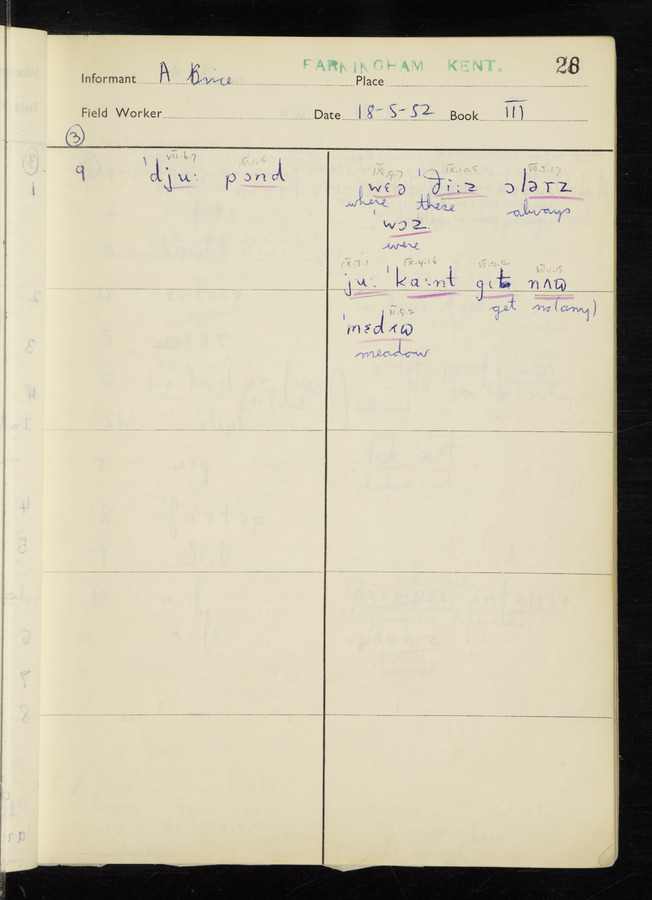 FARNINGHAM KENT. 28
Informant A Brice Place
Field Worker Date 18-5-52 Book III
3
VII.6.7 IV.1.5
9 ˈdjuː pɔnd
IX.9.7 IX.10.5 VII.3.17
wɛə ˈðiːz ɔləɪz
where these always
ˈwɔz
were
IX.7.1 IX.4.16 VI.2.2 VII.1.18
juː ˈkaːnt gɪt nʌɷ
get no (any)
II.9.2
ˈmɛdʌɷ
meadow